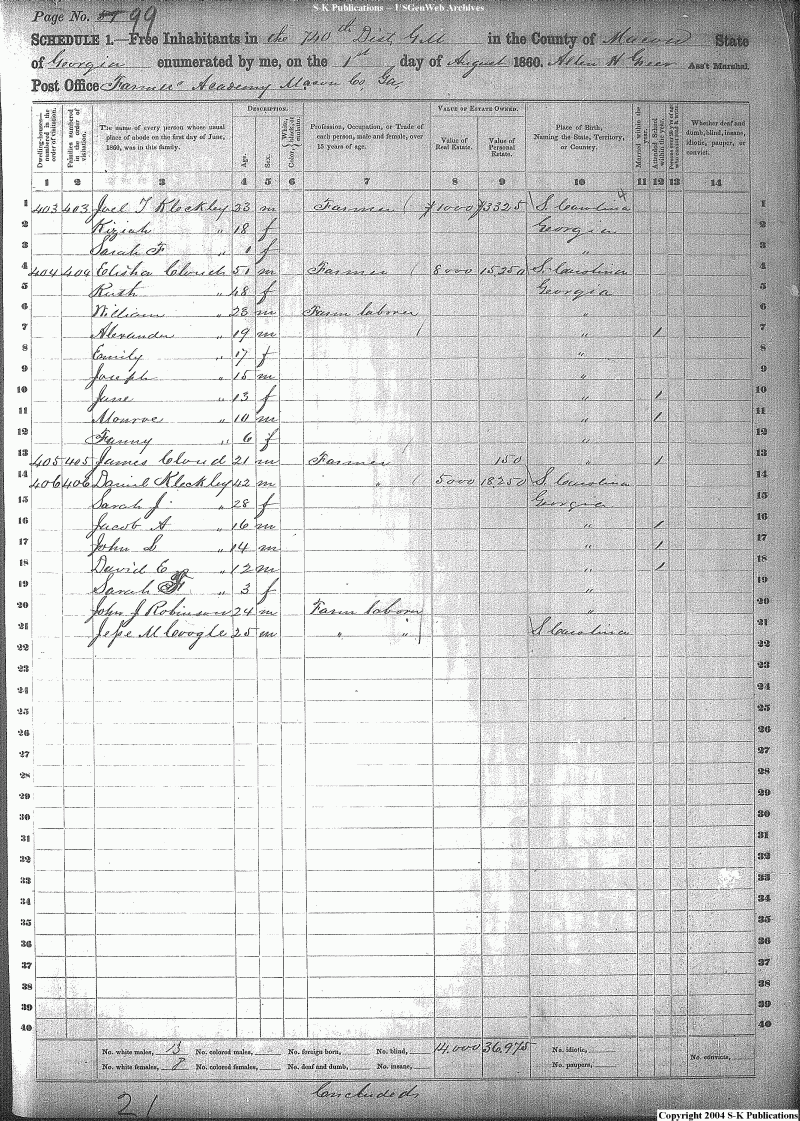 S-K Publications – USGenWeb Archives
Page No. 99
SCHEDULE 1.—Free Inhabitants in the 740th Dist G M in the County of Macon State
of Georgia enumerated by me, on the 1st day of August 1860. Allen H Greer Ass't Marshal.
Post Office Farmers Academy Macon Co, Ga,
Dwelling-houses—numbered in the order of visitation.
Families numbered in the order of visitation.
The name of every person whose usual place of abode on the first day of June, 1860, was in this family.
DESCRIPTION.
Age.
Sex.
Color, White, black, or mulatto.
Profession, Occupation, or Trade of each person, male and female, over 15 years of age.
VALUE OF ESTATE OWNED.
Value of Real Estate.
Value of Personal Estate.
Place of Birth, Naming the State, Territory, or Country.
Married within the year.
Attended School within the year.
Whether deaf and dumb, blind, insane, idiotic, pauper, or convict.
1 2 3 4 5 6 7 8 9 10 11 12 13 14
1 403 403 Joel T Kleckley 23 m Farmer 1000 3325 S. Carolina 4 1
2 Kiziah " 18 f Georgia 2
3 Sarah F " 1 f " 3
4 404 404 Elisha Cloud 51 m Farmer 8000 15250 S. Carolina 4
5 Ruth " 48 f Georgia 5
6 William " 23 m Farm laborer " 6
7 Alexander " 19 m " 1 7
8 Emily " 17 f " 8
9 Joseph " 15 m " 9
10 Jane " 13 f " 1 10
11 Monroe " 10 m " 1 11
12 Fanny " 6 f " 12
13 405 405 James Cloud 21 m Farmer 150 " 1 13
14 406 406 Daniel Kleckley 42 m " 5000 18250 S. Carolina 14
15 Sarah J " 28 f Georgia 15
16 Jacob A " 16 m " 1 16
17 John L " 14 m " 1 17
18 David E " 12 m " 1 18
19 Sarah F " 3 f " 19
20 John J Robinson 24 m Farm laborer " 20
21 Jesse M Coogle 25 m " " S Carolina 21
22 22
23 23
24 24
25 25
26 26
27 27
28 28
29 29
30 30
31 31
32 32
33 33
34 34
35 35
36 36
37 37
38 38
39 39
40 40
No. white males, 13 No. colored males, No. foreign born, No. blind, 14,000 36,975 No. idiotic, No. convicts,
No. white females, 8 No. colored females, No. deaf and dumb, No. insane, No. paupers,
21 Concluded
Copyright 2004 S-K Publications